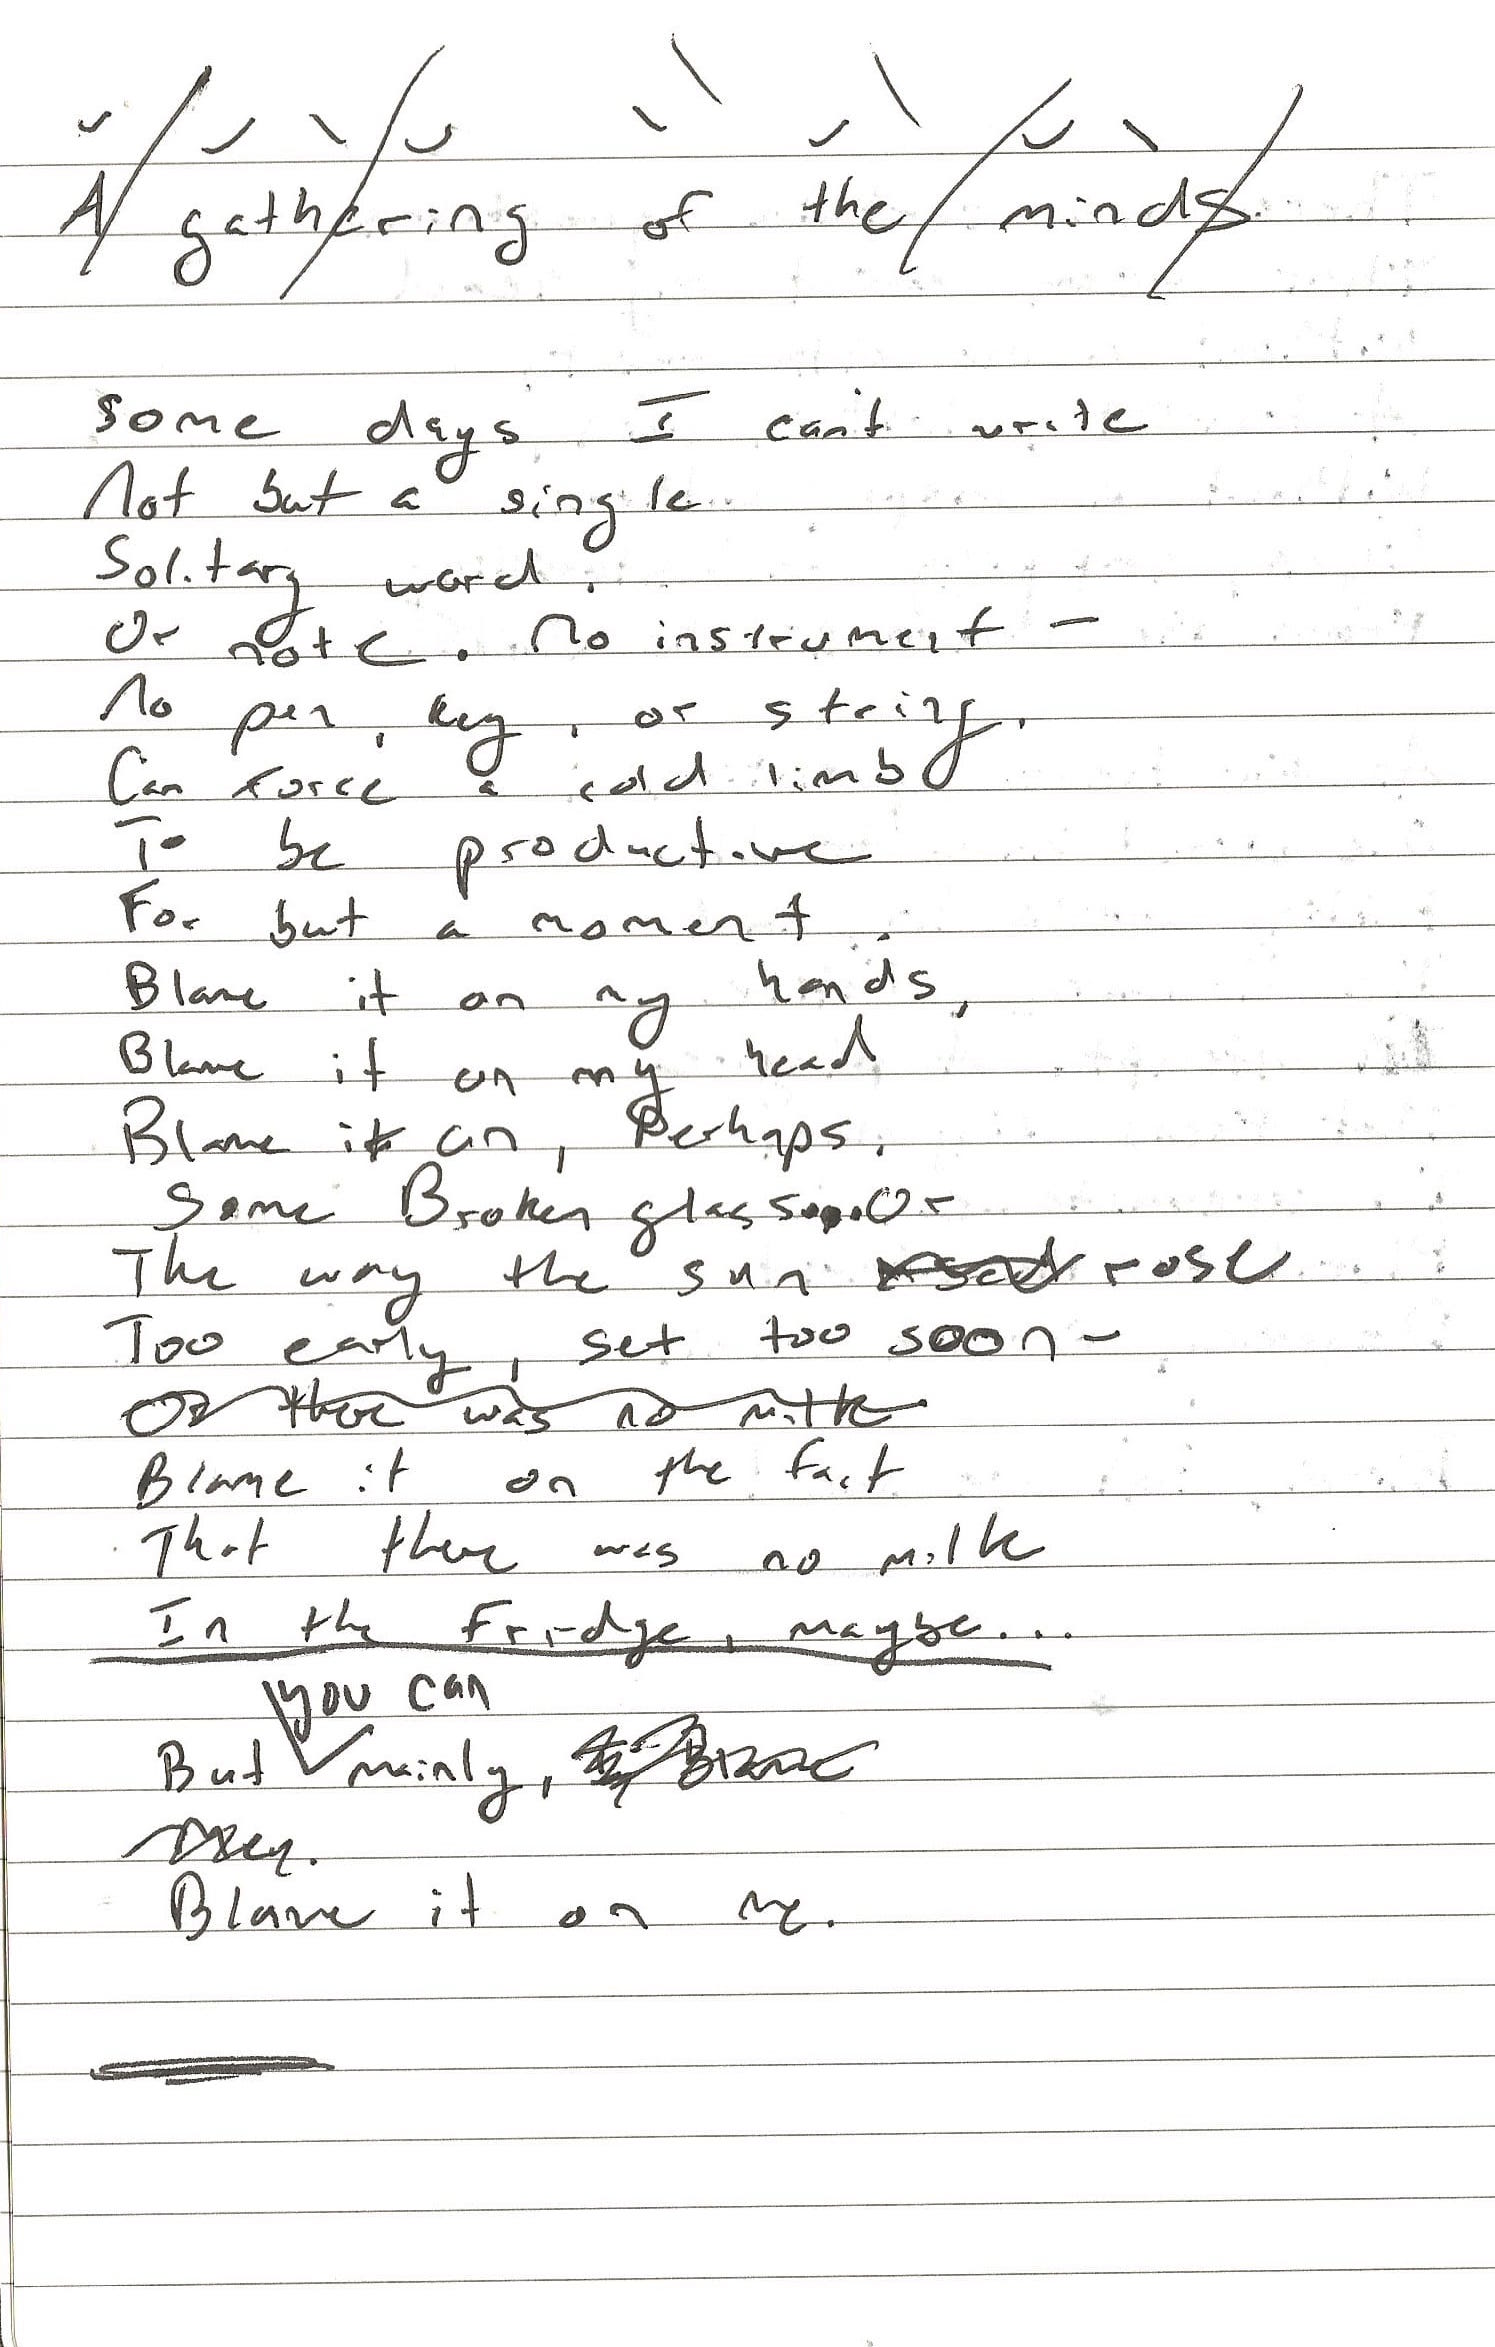 A gathering of the minds
Some days I can't write
Not but a single
Solitary word.
Or note. No instrument -
No pen, key, or string,
Can force a cold limb
To be productive
For but a moment.
Blame it on my hands,
Blame it on my head
Blame it on, Perhaps,
Some Broken glass....Or
The way the sun rose
Too early, set too soon -
Or there was no milk
Blame it on the fact
That there was no milk
In the Fridge, maybe...
you can
But mainly, Blame
Blame it on me.